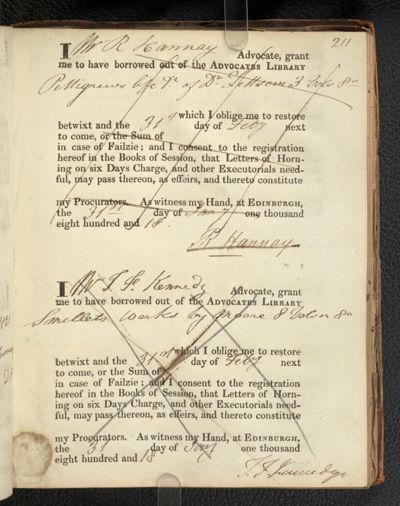 211
I Wm R Hannay Advocate, grant
me to have borrowed out of the ADVOCATES LIBRARY
Pettigrews life &c of Dr Lettsom 3 vols 8o
which I oblige me to restore
betwixt and the 31st day of Feby next
to come, or the Sum of
in case of Failzie; and I consent to the registration
hereof in the Books of Session, that Letters of Horn-
ing on six Days Charge, and other Executorials need-
ful, may pass thereon, as effeirs, and thereto constitute
my Procurators. As witness my Hand, at EDINBURGH,
the 31st day of Jany one thousand
eight hundred and 18
R Hannay
I T F Kennedy Advocate, grant
me to have borrowed out of the ADVOCATES LIBRARY
Smollets works by Moore 8 Vols 8o
which I oblige me to restore
betwixt and the 31st day of Feby next
to come, or the Sum of
in case of Failzie; and I consent to the registration
hereof in the Books of Session, that Letters of Horn-
ing on six Days Charge, and other Executorials need-
ful, may pass thereon, as effeirs, and thereto constitute
my Procurators. As witness my Hand, at EDINBURGH,
the 31 day of Jany one thousand
eight hundred and 18
T. F. Kennedy